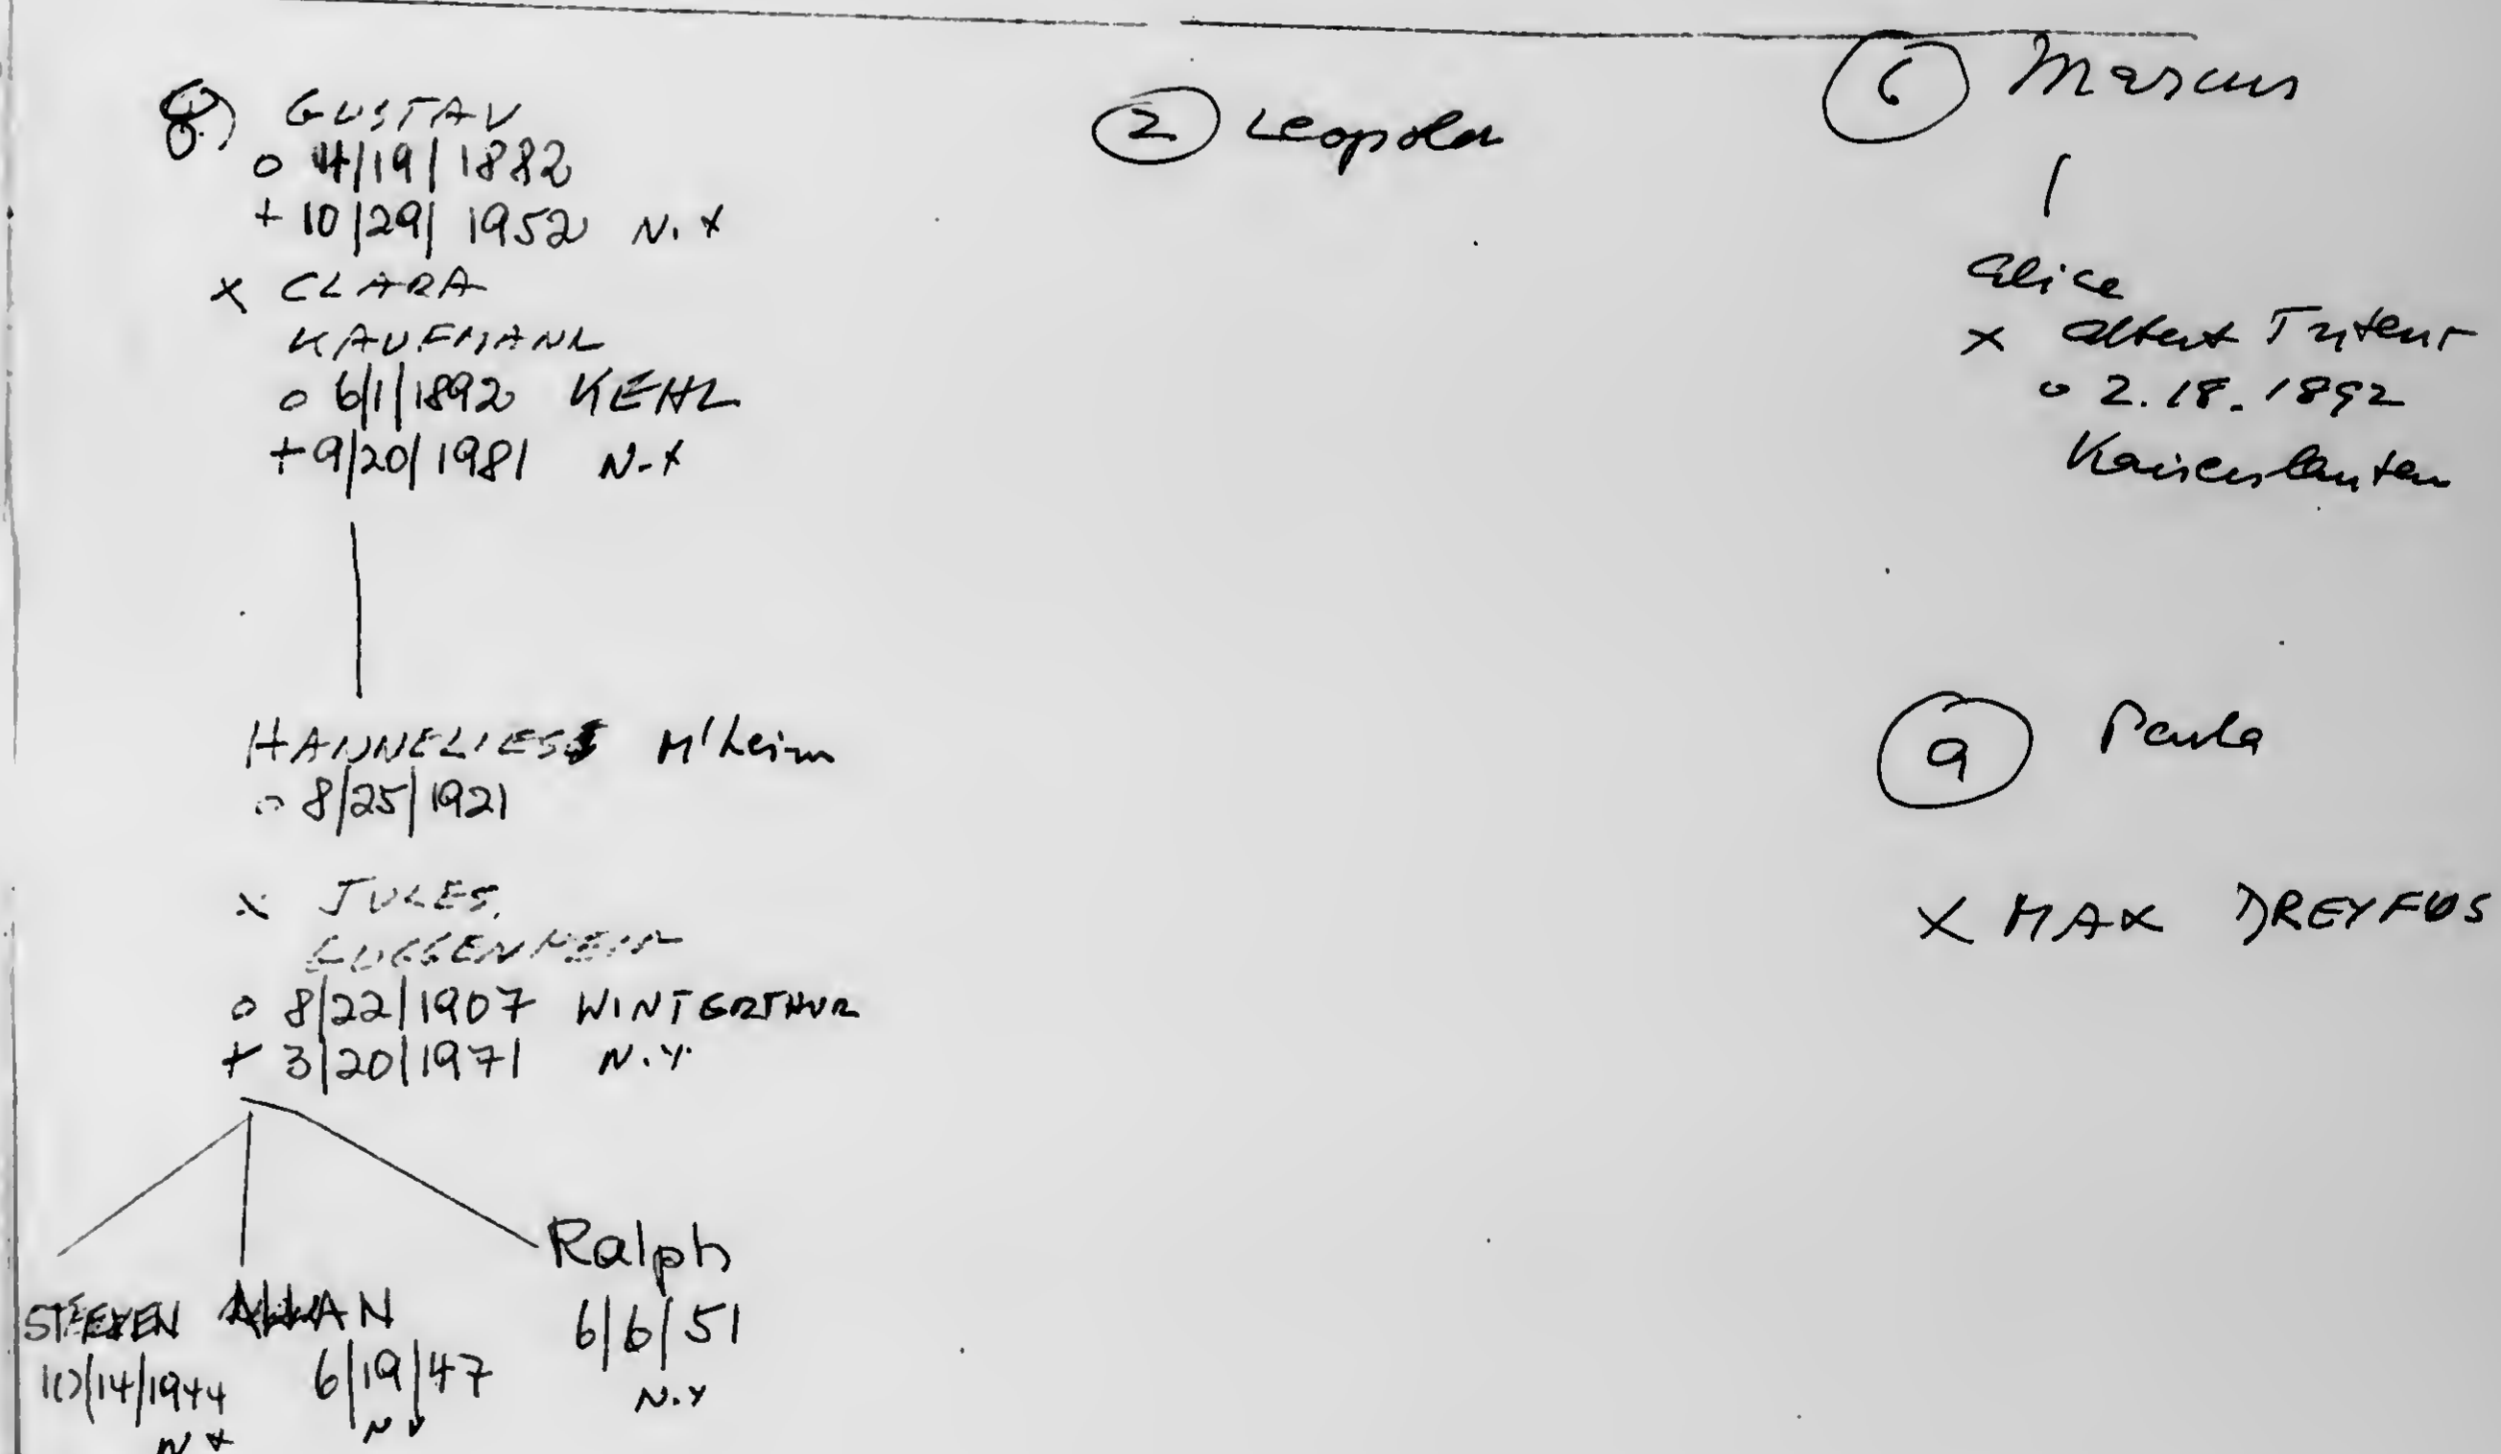 8.) GUSTAV
o 4/19/1882
+ 10/29/1952 N.Y
x CLARA
KAUFMANN
o 6/1/1892 KEHL
+ 9/20/1981 N.Y
HANNELIESE M'heim
o 8/25/1921
x JULES
GUGGENHEIM
o 8/22/1907 WINTERTHUR
+ 3/20/1971 N.Y.
STEVEN
10/14/1944
N Y
ALLAN
6/19/47
N Y
Ralph
6/6/51
N.Y
2 Leopold
6 Marcus
Alice
x Albert
o 2.18.1892
Kaiserslautern
9 Paula
X MAX DREYFUS